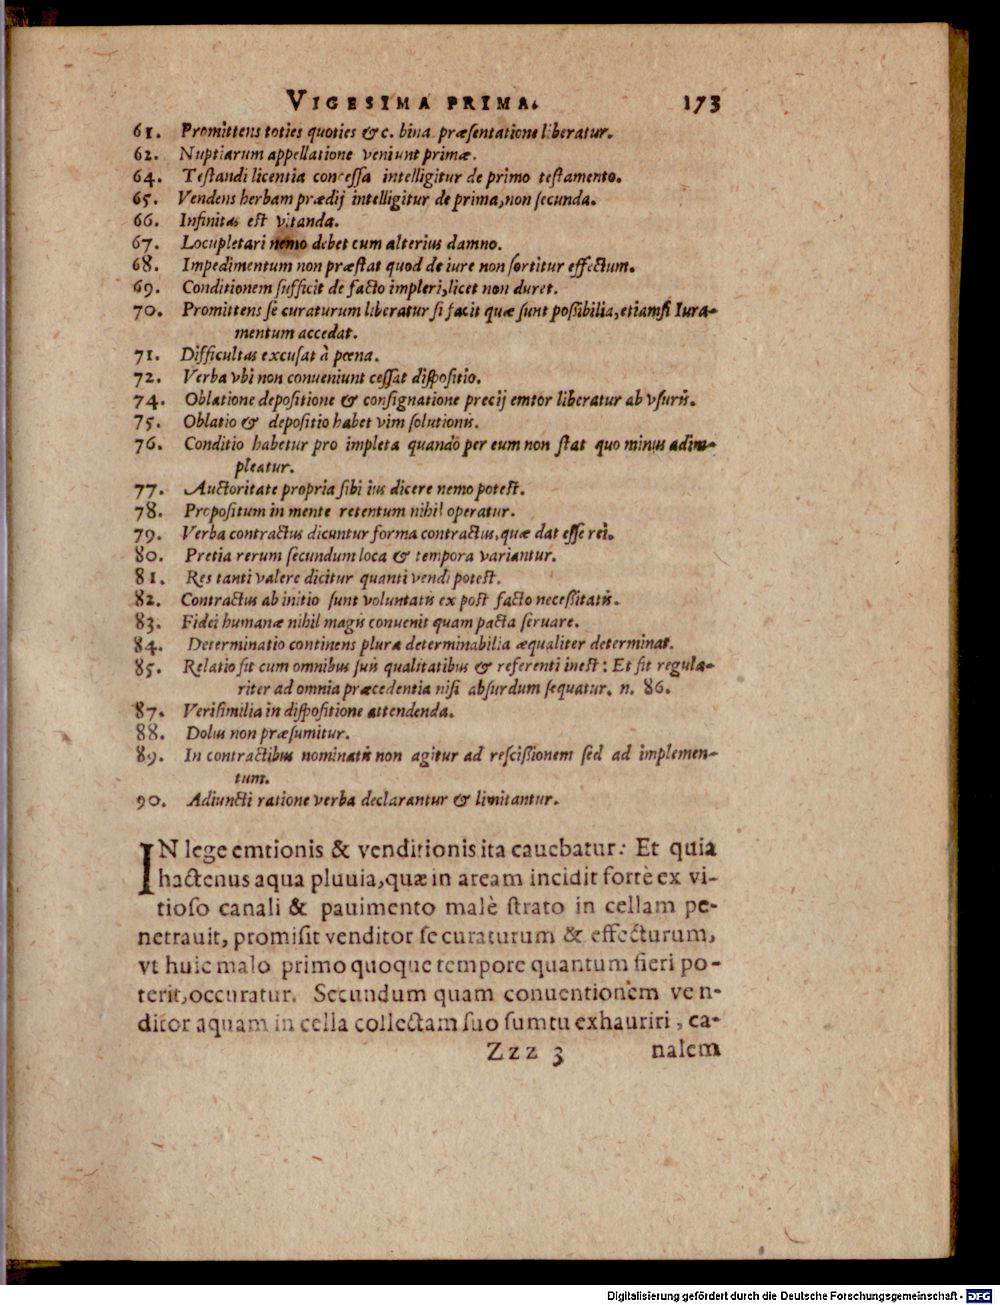 VIGESIMA PRIMA. 173
61. Promittens toties quoties &c. bina præsentatione liberatur.
62. Nuptiarum appellatione veniunt primæ.
64. Testandi licentia concessa intelligitur de primo testamento.
65. Vendens herbam prædij intelligitur de prima, non secunda.
66. Infinitas est vitanda.
67. Locupletari nemo debet cum alterius damno.
68. Impedimentum non præstat quod de iure non sortitur effectum.
69. Conditionem sufficit de facto impleri, licet non duret.
70. Promittens se curaturum liberatur si facit quæ sunt possibilia, etiamsi Iura-
mentum accedat.
71. Difficultas excusat à pœna.
72. Verba vbi non conueniunt cessat dispositio.
74. Oblatione depositione & consignatione precij emtor liberatur ab vsuris.
75. Oblatio & depositio habet vim solutionis.
76. Conditio habetur pro impleta quando per eum non stat quo minus adim-
pleatur.
77. Auctoritate propria sibi ius dicere nemo potest.
78. Propositum in mente retentum nihil operatur.
79. Verba contractus dicuntur forma contractus, quæ dat esse rei.
80. Pretia rerum secundum loca & tempora variantur.
81. Res tanti valere dicitur quanti vendi potest.
82. Contractus ab initio sunt voluntatis ex post facto necessitatis.
83. Fidei humanæ nihil magis conuenit quam pacta seruare.
84. Determinatio continens plura determinabilia æqualiter determinat.
85. Relatio fit cum omnibus suis qualitatibus & referenti inest: Et fit regula-
riter ad omnia præcedentia nisi absurdum sequatur. n. 86.
87. Verisimilia in dispositione attendenda.
88. Dolus non præsumitur.
89. In contractibus nominatis non agitur ad rescissionem sed ad implemen-
tum.
90. Adiuncti ratione verba declarantur & limitantur.
IN lege emtionis & venditionis ita cauebatur: Et quia
hactenus aqua pluuia, quæ in aream incidit fortè ex vi-
tioso canali & pauimento malè strato in cellam pe-
netrauit, promisit venditor se curaturum & effecturum,
vt huic malo primo quoque tempore quantum fieri po-
terit, occuratur. Secundum quam conuentionem ven-
ditor aquam in cella collectam suo sumtu exhauriri, ca-
Zzz 3 nalem
Digitalisierung gefördert durch die Deutsche Forschungsgemeinschaft - DFG